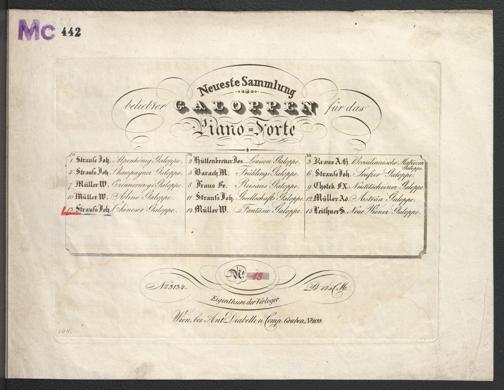 Mc 442
Neueste Sammlung
beliebter GALOPPEN für das
Piano=Forte
1 Strauss Joh. Alpenkönig Galoppe.
2 Hüttenbrenner Jos. Louisen Galoppe.
3 Kraus A.H.
4 Strauss Joh. Champagner Galoppe.
5 Barach M. Frühlings Galoppe.
6 Strauss Joh. Seufzer Galoppe.
7 Müller W. Erinnerungs Galoppe.
8 Fraus Fr. Galoppe.
9 Chotek F.X. Galoppe.
10 Müller W. Galoppe.
11 Strauss Joh. Gesellschafts Galoppe.
12 Müller Ad. Austria Galoppe.
13 Strauss Joh. Chineser Galoppe.
14 Müller W. Fantasie Galoppe.
15 Leithner S. Neue Wiener Galoppe.
No. 13
No. 3134.
Eigenthum der Verleger
Wien, bei Ant. Diabelli u. Comp. Graben, No. 1133